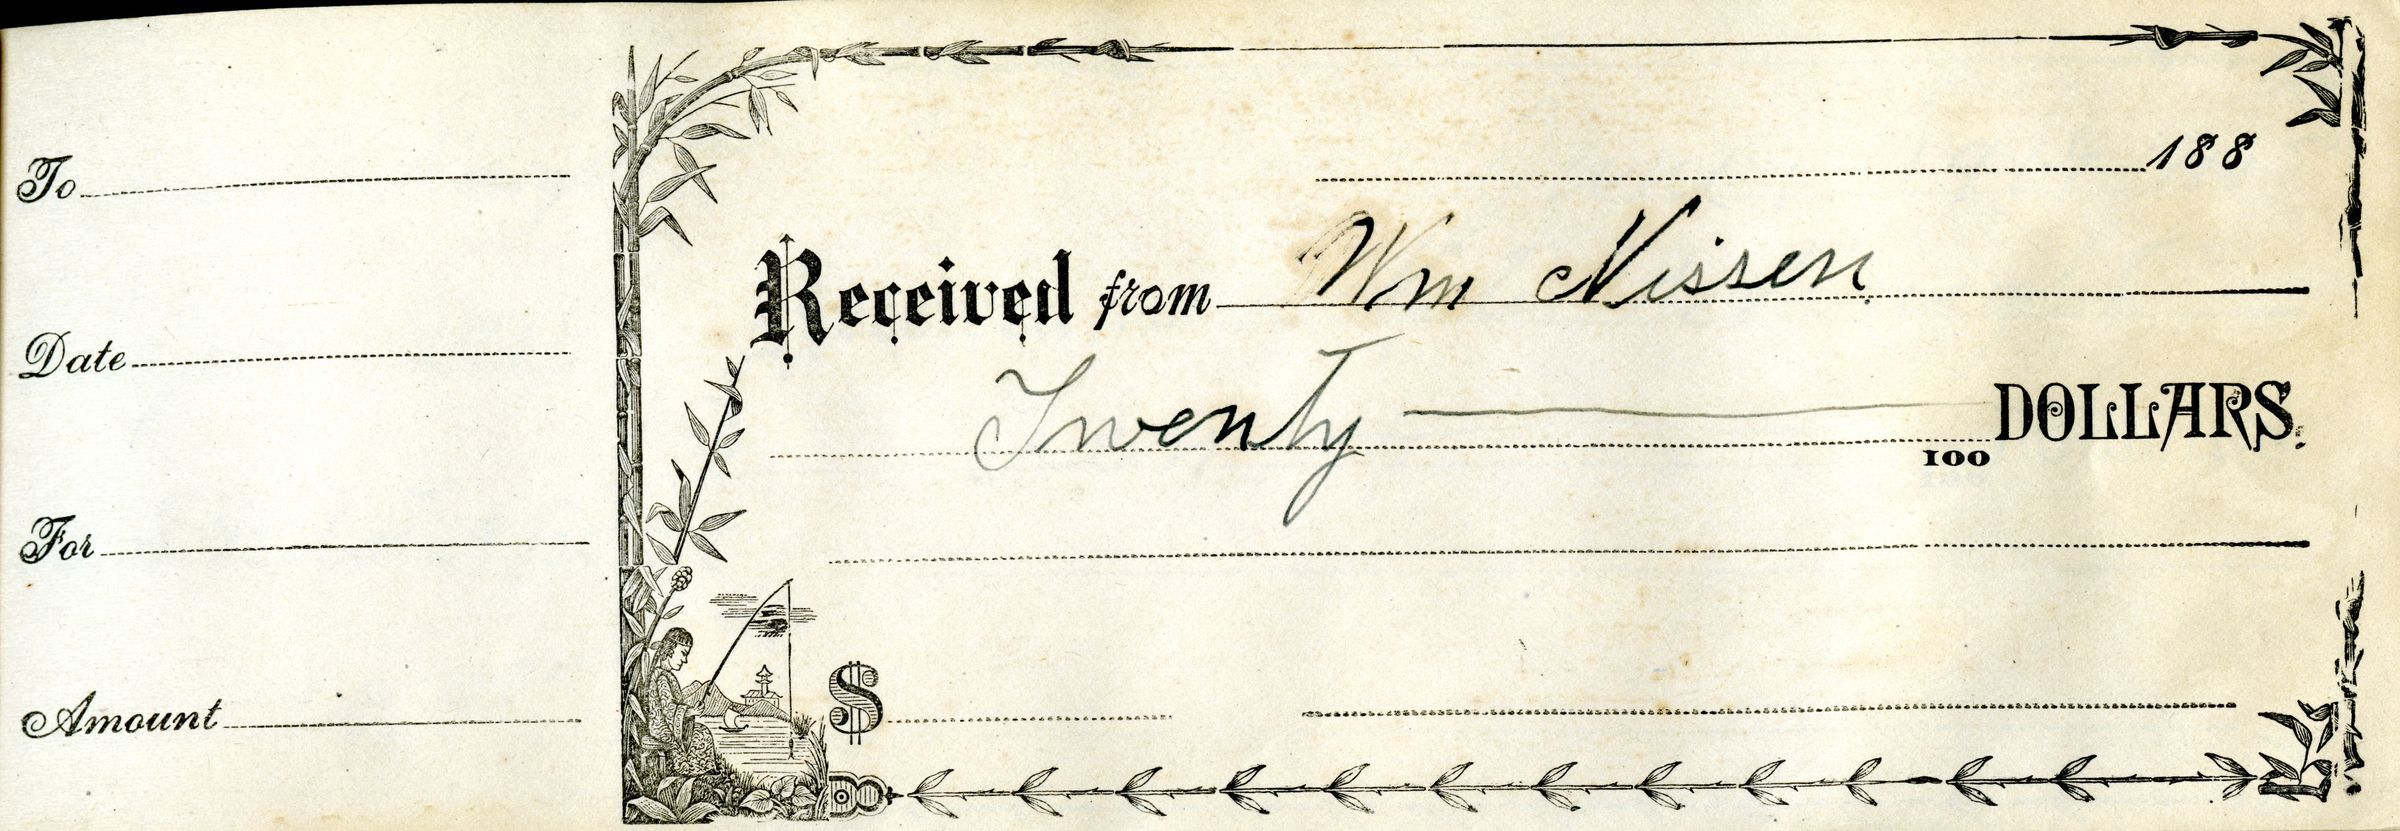 To
Date
For
Amount
188
Received from Wm Nissen
Twenty DOLLARS.
100
$